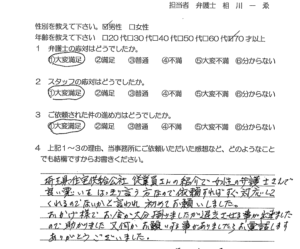 担当者 弁護士 相 川 一 ゑ
性別を教えて下さい。☑男性 □女性
年齢を教えて下さい □20代□30代□40代□50代□60代☑70才以上
1 弁護士の応対はどうでしたか。
①大変満足 ②満足 ③普通 ④不満 ⑤大変不満 ⑥分からない
2 スタッフの応対はどうでしたか。
①大変満足 ②満足 ③普通 ④不満 ⑤大変不満 ⑥分からない
3 ご依頼された件の進め方はどうでしたか。
①大変満足 ②満足 ③普通 ④不満 ⑤大変不満 ⑥分からない
4 上記1～3の理由、当事務所にご依頼いただいた感想など、どのようなことでも結構ですからお書きください。
埼玉県住宅供給公社 従業員さんの紹介で 女性の弁護士さんで
言う方なので依頼すればすぐ対応して
くれるのではないかと言われ 初めてお願いしました。
おかげ様で お金が大分掛りましたが退去させる事が出来ました
ので助かりました 又何かお願いする事がありましたらお電話します
ありがとうございました。